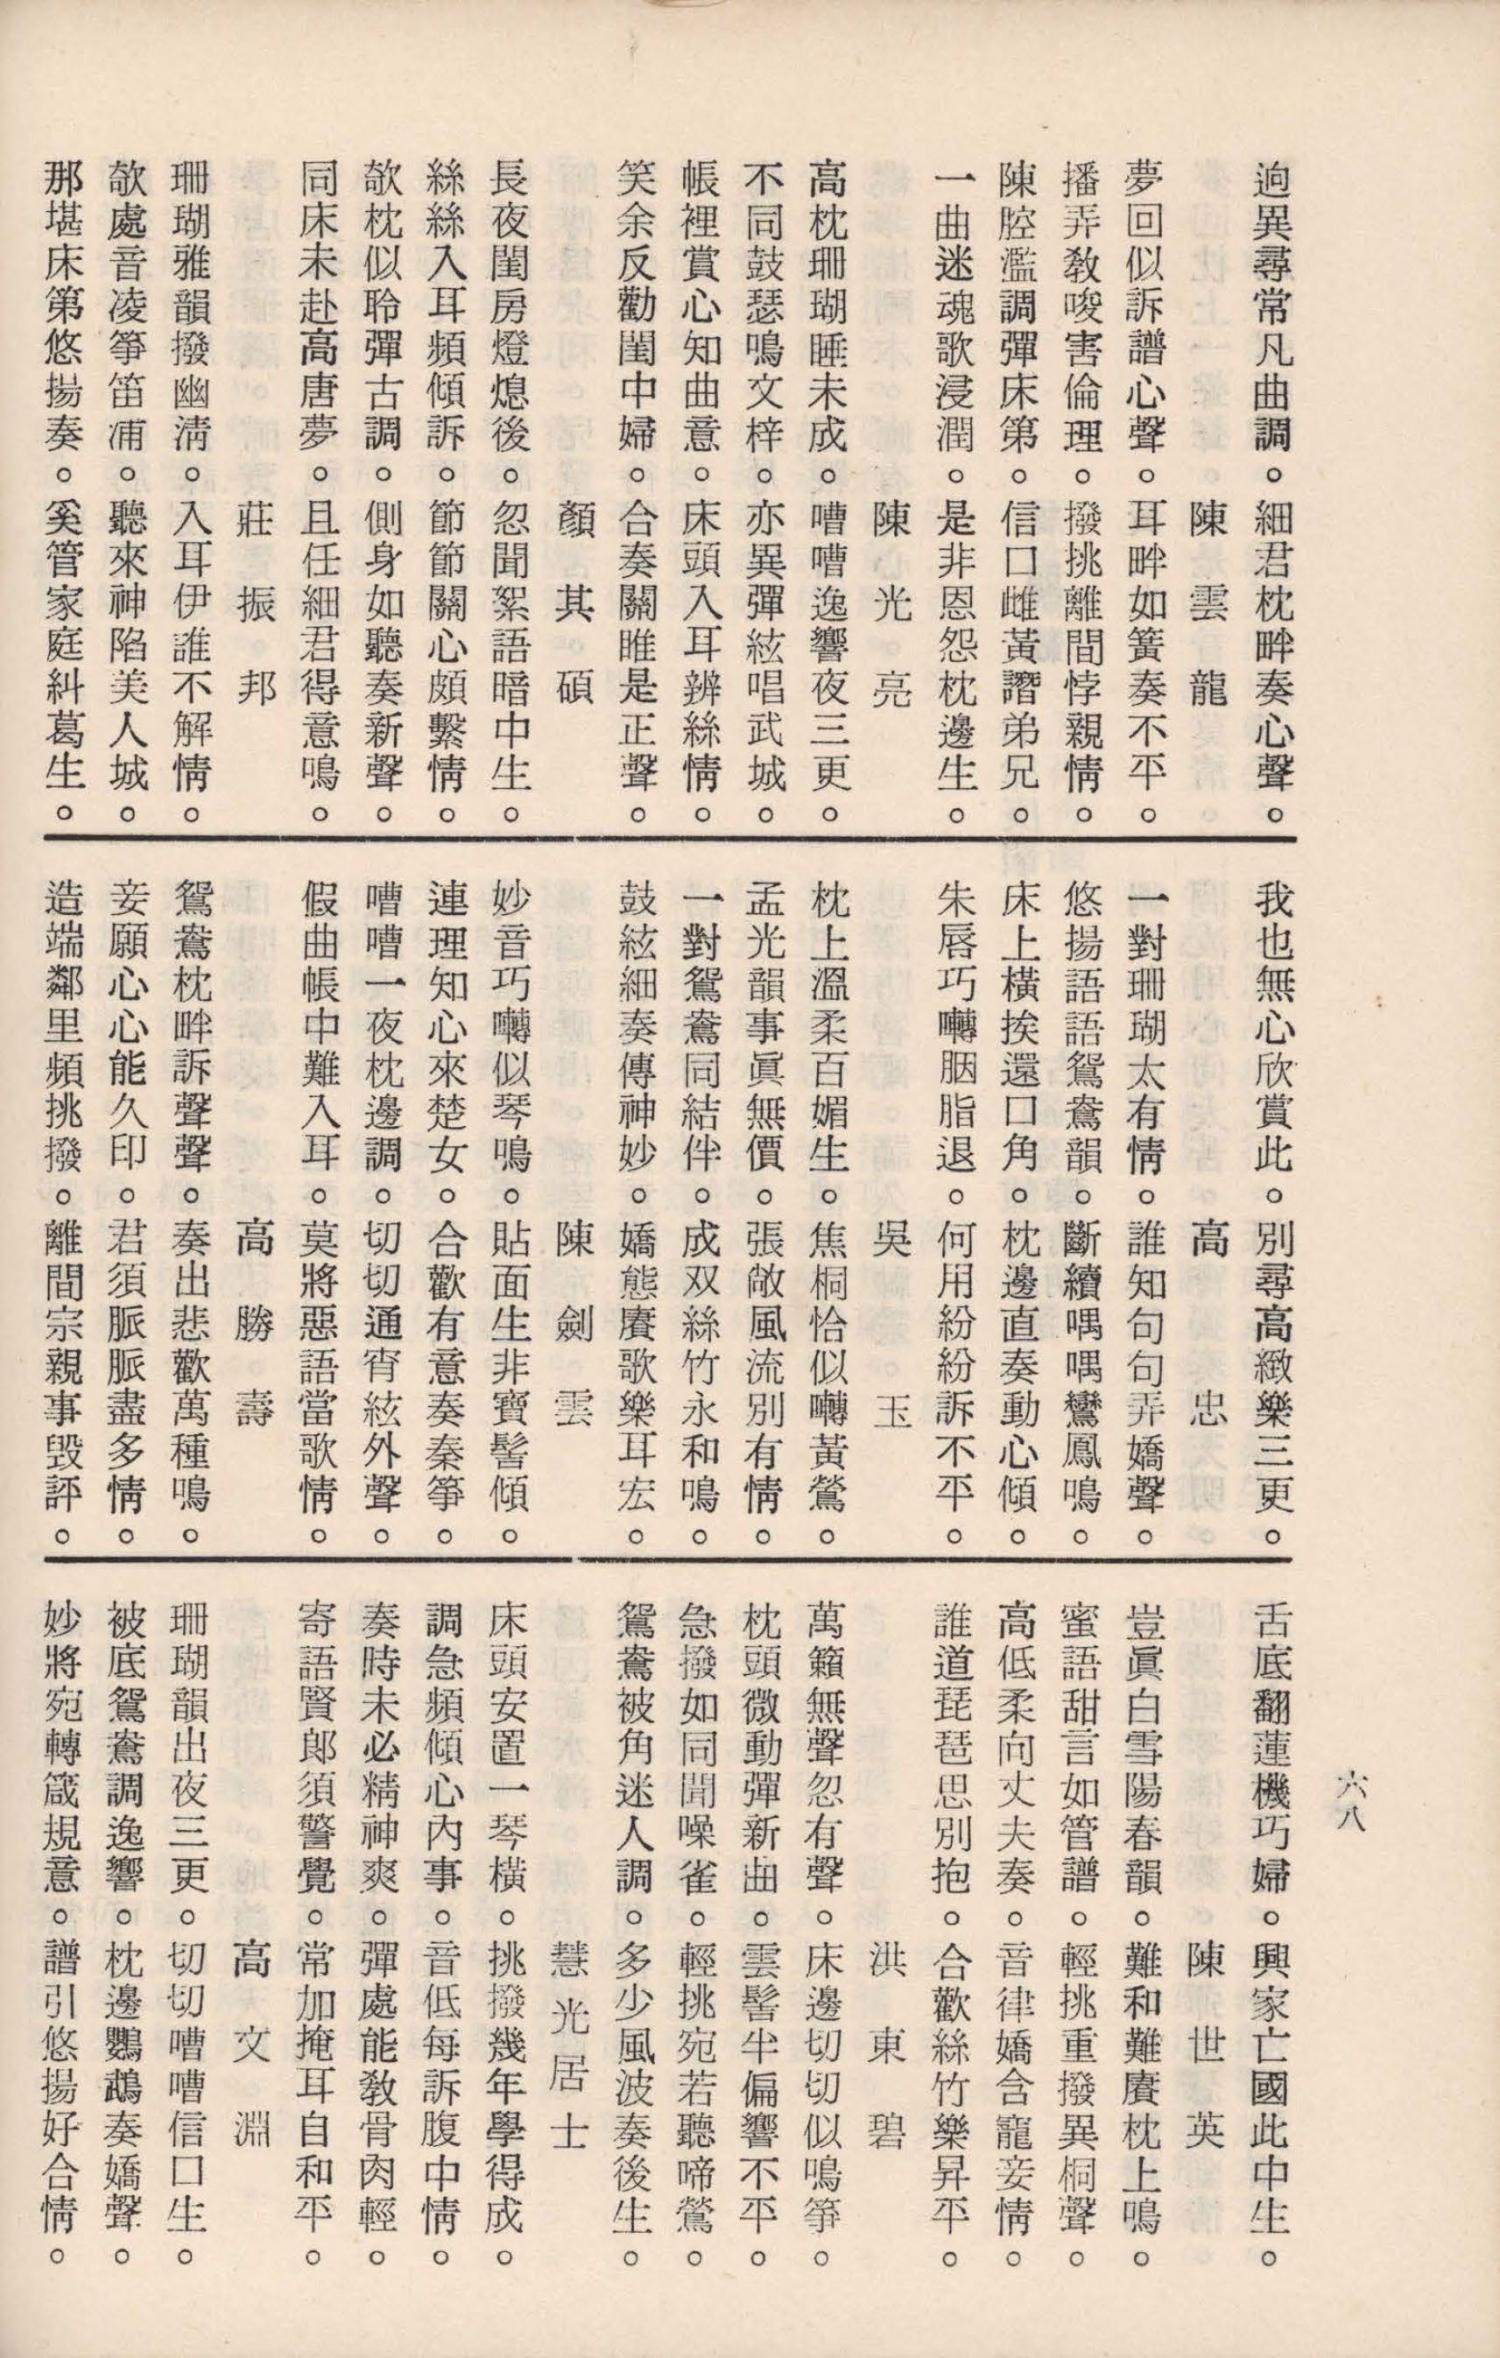 逈異尋常凡曲調。細君枕畔奏心聲。
陳雲龍
夢回似訴譜心聲。耳畔如簧奏不平。
播弄敎唆害倫理。撥挑離間悖親情。
陳腔濫調彈床第。信口雌黃譖弟兄。
一曲迷魂歌浸潤。是非恩怨枕邊生。
陳光亮
高枕珊瑚睡未成。嘈嘈逸響夜三更。
不同鼓瑟鳴文梓。亦異彈絃唱武城。
帳裡賞心知曲意。床頭入耳辨絲情。
笑余反勸閨中婦。合奏關睢是正聲。
顏其碩
長夜閨房燈熄後。忽聞絮語暗中生。
絲絲入耳頻傾訴。節節關心頗繫情。
欹枕似聆彈古調。側身如聽奏新聲。
同床未赴高唐夢。且任細君得意鳴。
莊振邦
珊瑚雅韻撥幽淸。入耳伊誰不解情。
欹處音凌箏笛浦。聽來神陷美人城。
那堪床第悠揚奏。奚管家庭糾葛生。
我也無心欣賞此。別尋高緻樂三更。
高忠
一對珊瑚太有情。誰知句句弄嬌聲。
悠揚語語鴛鴦韻。斷續喁喁鸞鳳鳴。
床上橫挨還口角。枕邊直奏動心傾。
朱唇巧囀胭脂退。何用紛紛訴不平。
吳玉
枕上溫柔百媚生。焦桐恰似囀黃鶯。
孟光韻事眞無價。張敞風流別有情。
一對鴛鴦同結伴。成双絲竹永和鳴。
鼓絃細奏傳神妙。嬌態賡歌樂耳宏。
陳劍雲
妙音巧囀似琴鳴。貼面生非寶髻傾。
連理知心來楚女。合歡有意奏秦箏。
嘈嘈一夜枕邊調。切切通宵絃外聲。
假曲帳中難入耳。莫將惡語當歌情。
高勝壽
鴛鴦枕畔訴聲聲。奏出悲歡萬種鳴。
妾願心心能久印。君須脈脈盡多情。
造端鄰里頻挑撥。離間宗親事毀評。
舌底翻蓮機巧婦。興家亡國此中生。
陳世英
豈眞白雪陽春韻。難和難賡枕上鳴。
蜜語甜言如管譜。輕挑重撥異桐聲。
高低柔向丈夫奏。音律嬌含寵妾情。
誰道琵琶思別抱。合歡絲竹樂昇平。
洪東碧
萬籟無聲忽有聲。床邊切切似鳴箏。
枕頭微動彈新曲。雲髻半偏響不平。
急撥如同聞噪雀。輕挑宛若聽啼鶯。
鴛鴦被角迷人調。多少風波奏後生。
慧光居士
床頭安置一琴橫。挑撥幾年學得成。
調急頻傾心內事。音低每訴腹中情。
奏時未必精神爽。彈處能敎骨肉輕。
寄語賢郞須警覺。常加掩耳自和平。
高文淵
珊瑚韻出夜三更。切切嘈嘈信口生。
被底鴛鴦調逸響。枕邊鸚鵡奏嬌聲。
妙將宛轉箴規意。譜引悠揚好合情。
六八